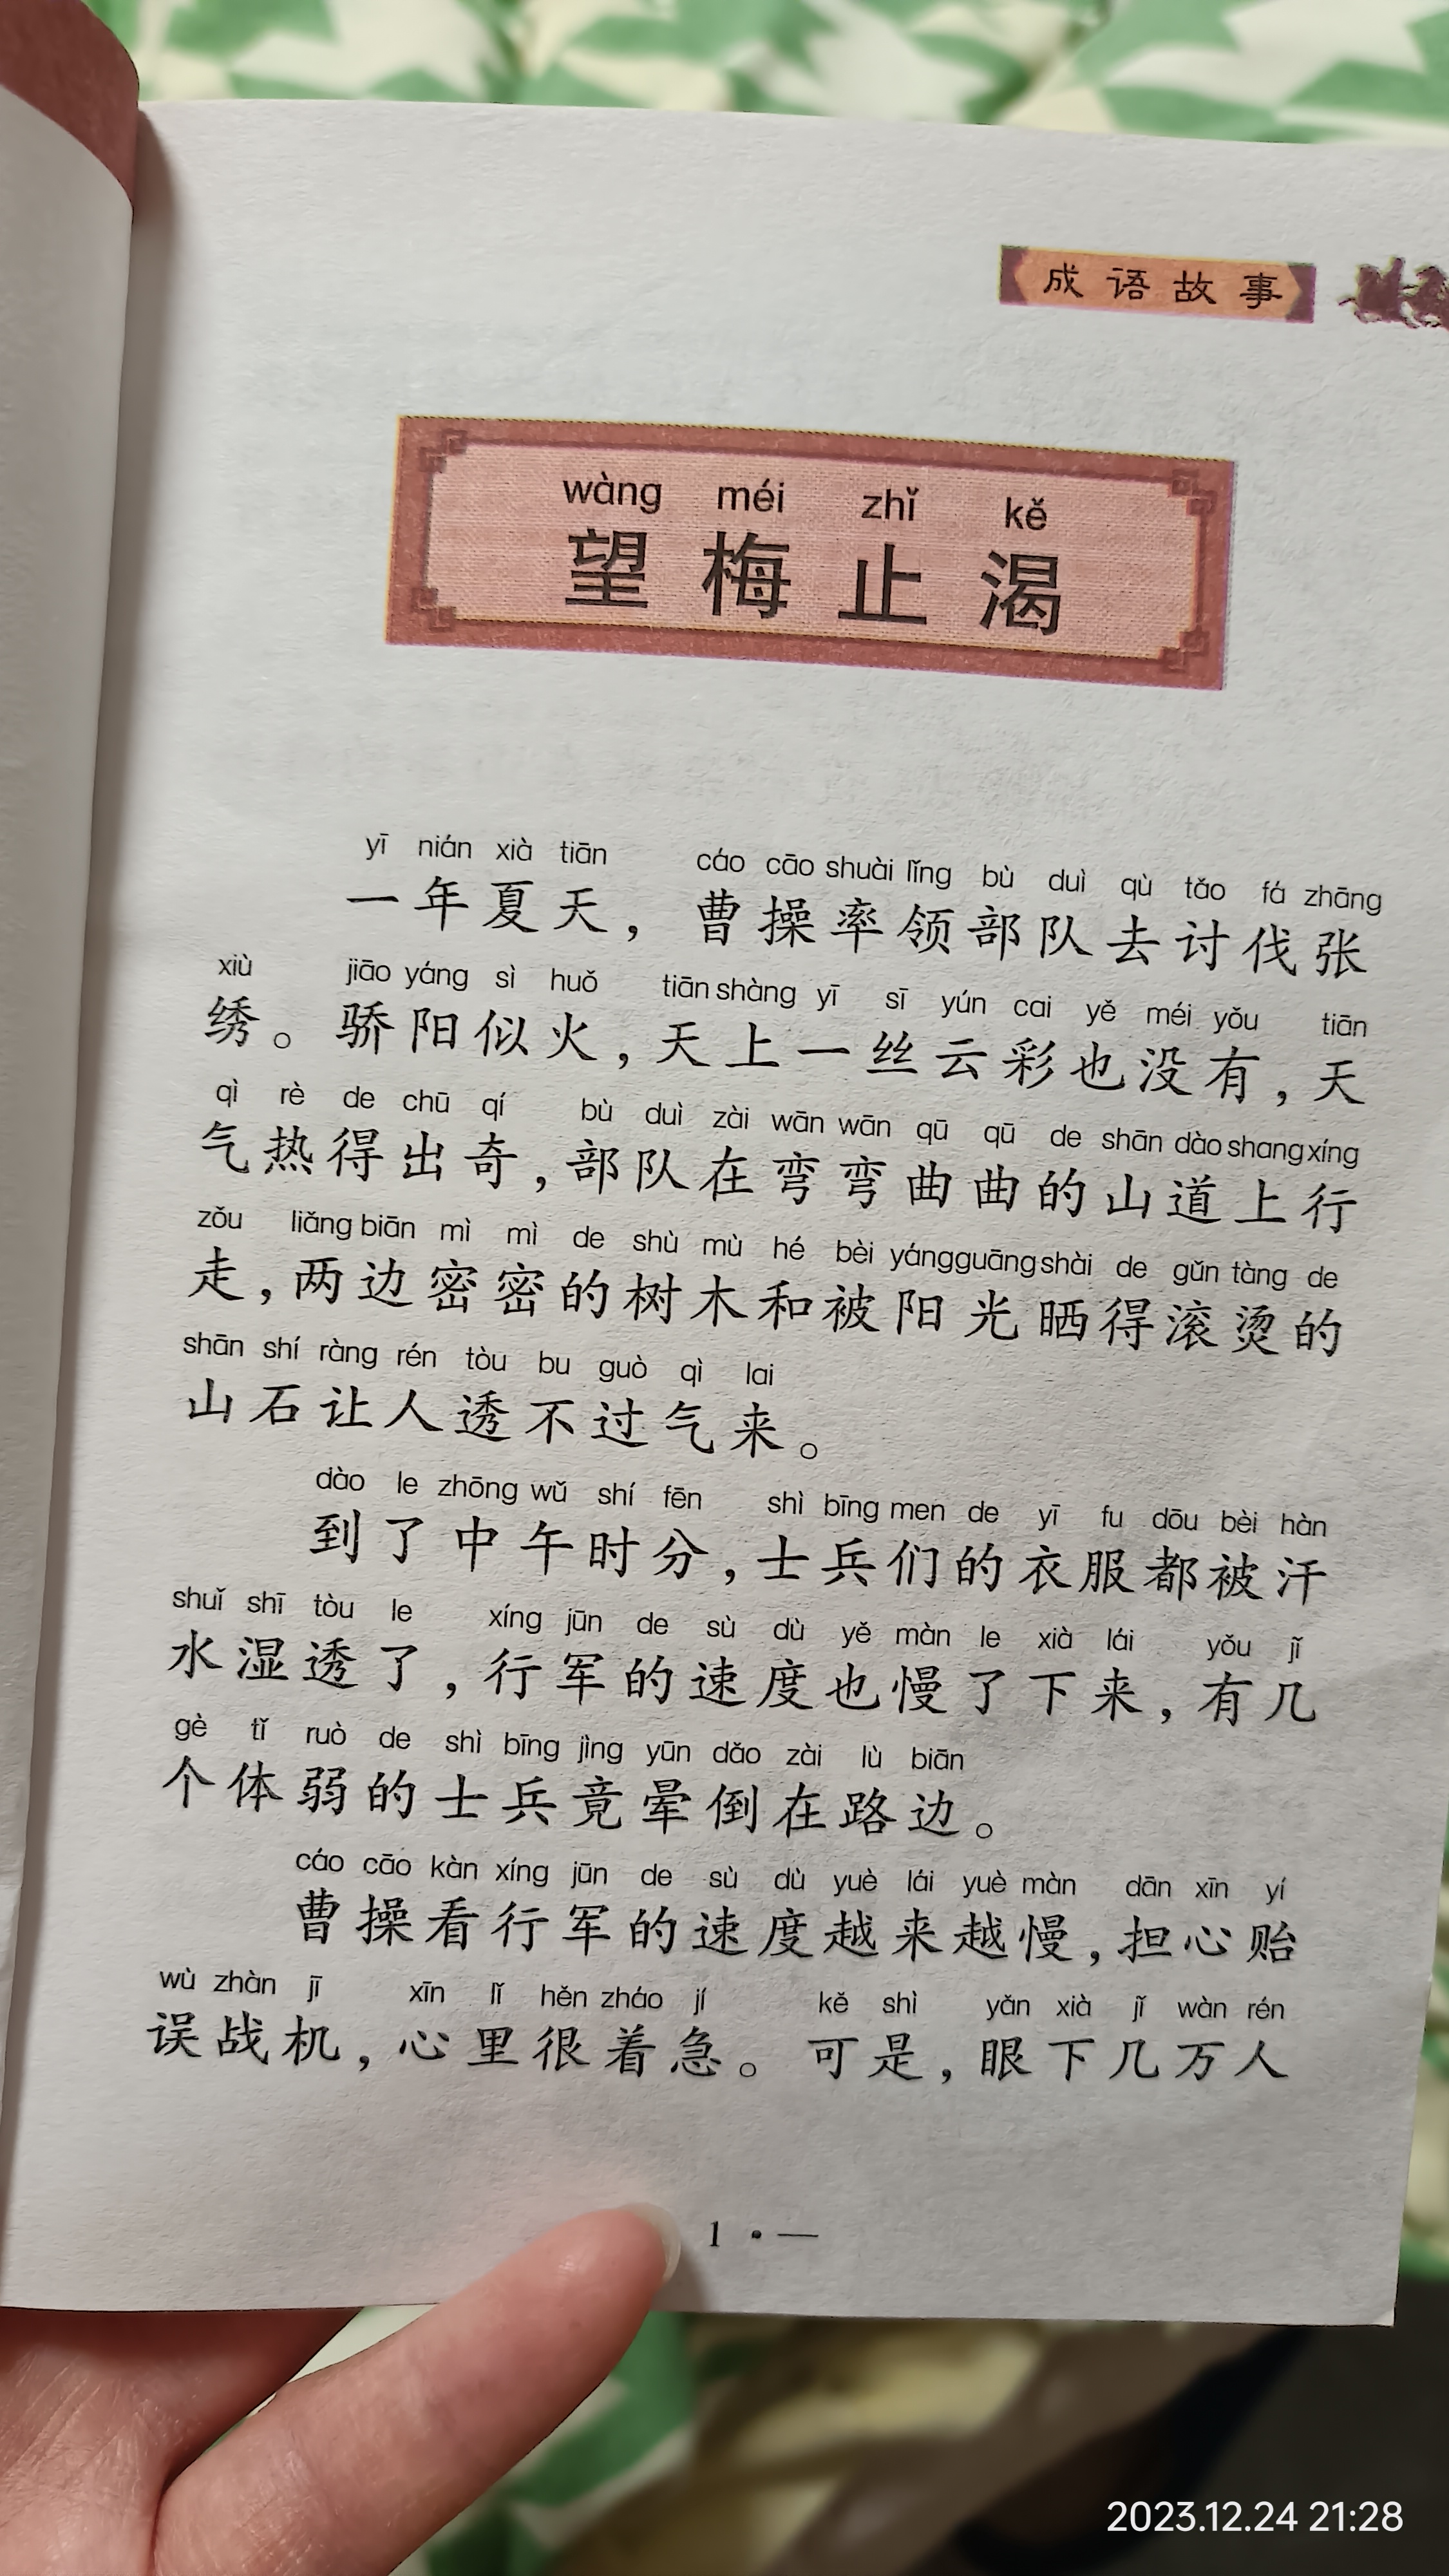 成语故事
wàng méi zhǐ kě
望梅止渴
yī nián xià tiān cáo cāo shuài lǐng bù duì qù tǎo fá zhāng
一年夏天，曹操率领部队去讨伐张
xiù jiāo yáng sì huǒ tiān shàng yī sī yún cai yě méi yǒu tiān
绣。骄阳似火，天上一丝云彩也没有，天
qì rè de chū qí bù duì zài wān wān qū qū de shān dào shang xíng
气热得出奇，部队在弯弯曲曲的山道上行
zǒu liǎng biān mì mì de shù mù hé bèi yángguāng shài de gǔn tàng de
走，两边密密的树木和被阳光晒得滚烫的
shān shí ràng rén tòu bu guò qì lai
山石让人透不过气来。
dào le zhōng wǔ shí fēn shì bīng men de yī fu dōu bèi hàn
到了中午时分，士兵们的衣服都被汗
shuǐ shī tòu le xíng jūn de sù dù yě màn le xià lái yǒu jǐ
水湿透了，行军的速度也慢了下来，有几
gè tǐ ruò de shì bīng jìng yūn dǎo zài lù biān
个体弱的士兵竟晕倒在路边。
cáo cāo kàn xíng jūn de sù dù yuè lái yuè màn dān xīn yí
曹操看行军的速度越来越慢，担心贻
wù zhàn jī xīn lǐ hěn zháo jí kě shì yǎn xià jǐ wàn rén
误战机，心里很着急。可是，眼下几万人
1 • —
2023.12.24 21:28